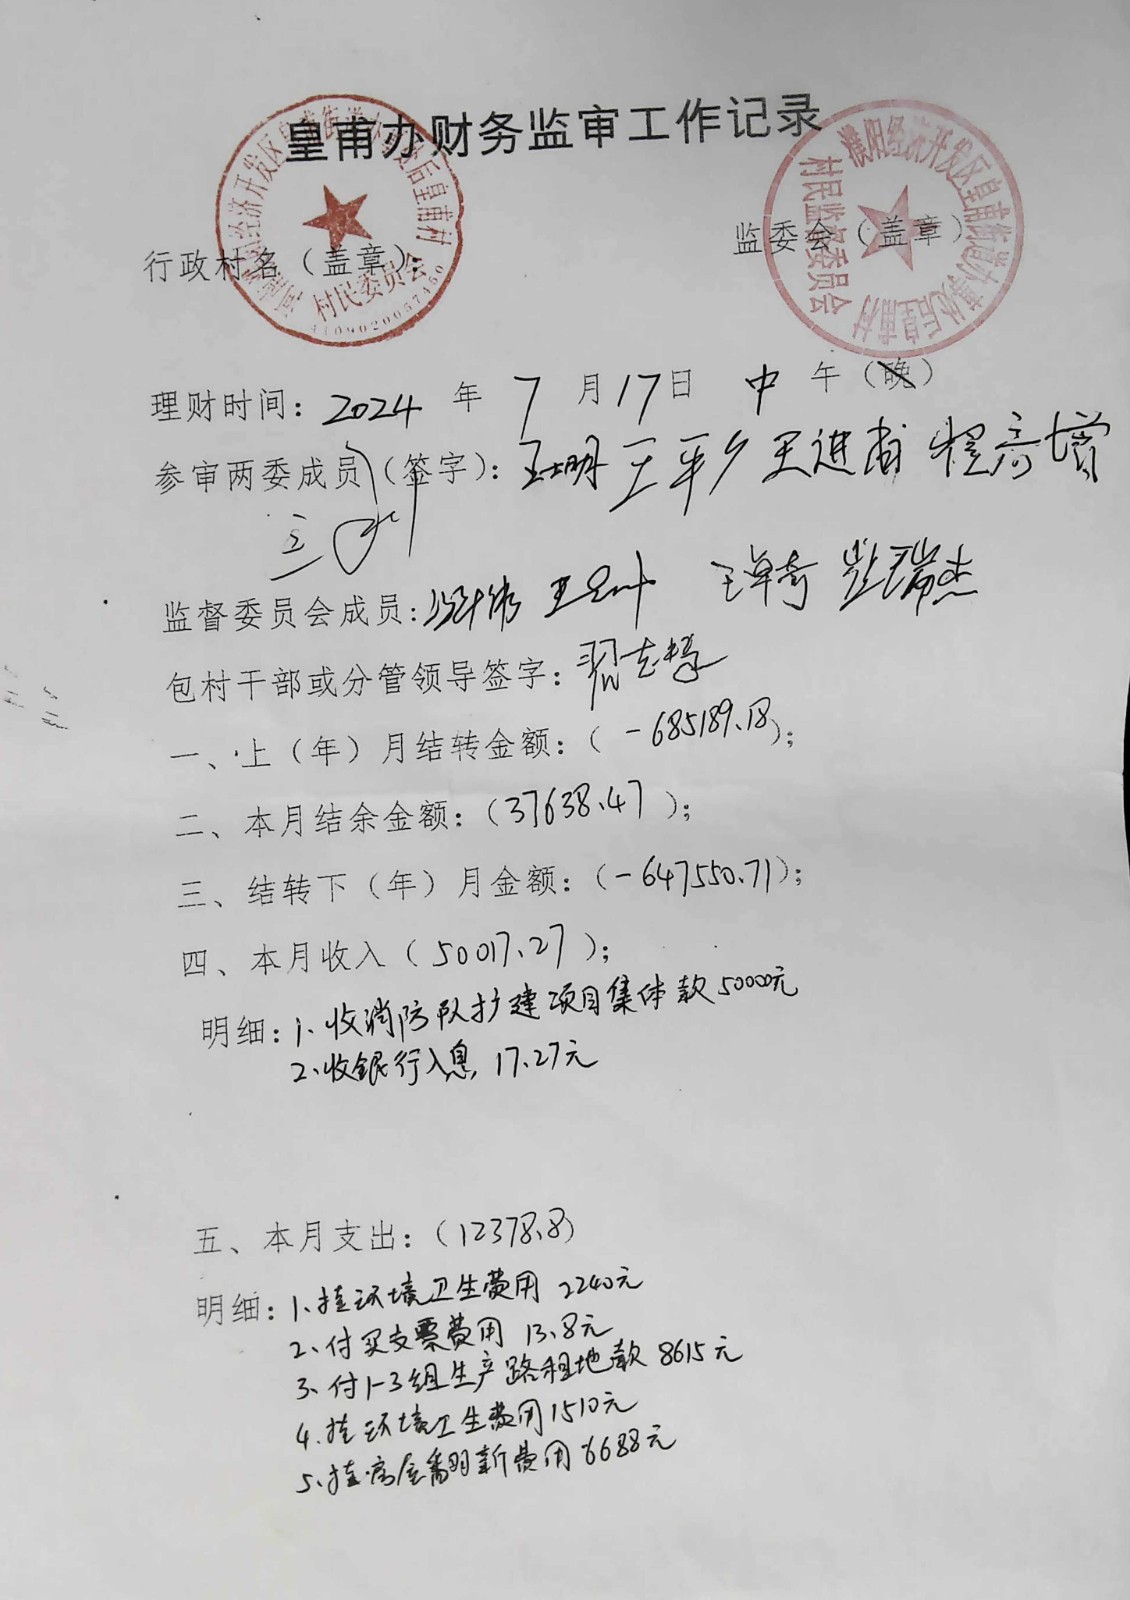 皇甫办财务监审工作记录
行政村名（盖章）：
监委会（盖章）
村民委员会
4109020057450
濮阳经济开发区皇甫街道办事处后皇甫村
村民监督委员会
理财时间：2024 年 7 月 17 日 中 午（晚）
参审两委成员（签字）： 王平 王进甫
监督委员会成员： 王卓奇 瑞杰
包村干部或分管领导签字：
一、上（年）月结转金额：（-685189.18）；
二、本月结余金额：（37638.47）；
三、结转下（年）月金额：（-647550.71）；
四、本月收入（50017.27）；
明细：1、收消防队扩建项目集体款50000元
2、收银行入息 17.27元
五、本月支出：（12378.8）
明细：1、挂环境卫生费用 2240元
2、付买支票费用 13.8元
3、付1-3组生产路租地款 8615元
4、挂环境卫生费用1510元
5、挂房屋翻新费用6688元